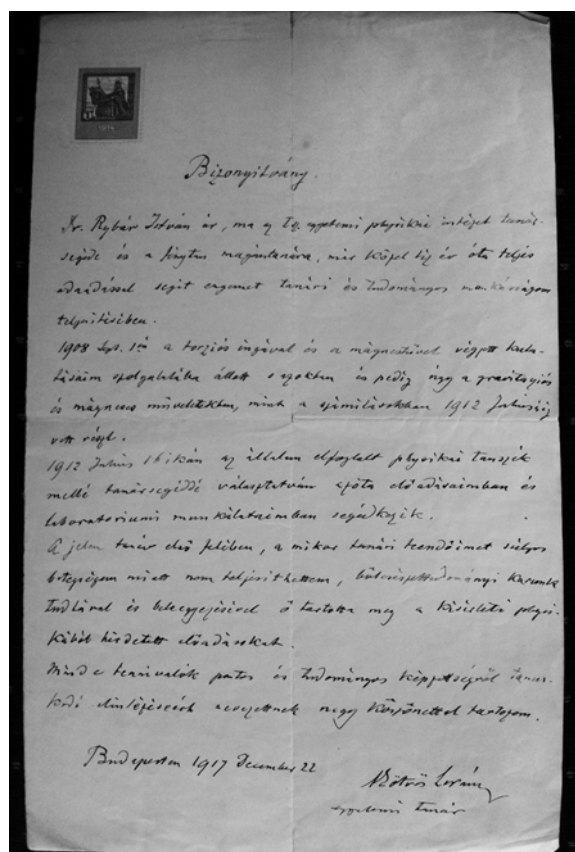 Bizonyitvány.
Dr. Rybár István úr, ma a egyetemi physikai intézet tanár-
segéde és a fénytan magántanára, már közel tiz év óta teljes
odaadással segit engemet tanári és tudományos munkásságom
teljesitésében.
1908 Sept. 1én a torziós ingával és a mágnestűvel végzett kuta-
tásaim szolgálatába állott s azokban és pedig úgy a gravitatiós
és mágneses műveletekben, mint a számitásokban 1912 Juliusáig
vett részt.
1912 Julius 16ikán az általam elfoglalt physikai tanszék
mellé tanársegéddé választatván azóta előadásaimban és
laboratoriumi munkálataimban segédkezik.
A jelen tanév első felében, a mikor tanári teendőimet súlyos
betegségem miatt nem teljesithettem, bölcsészettudományi Karunk
tudtával és beleegyezésével ő tartotta meg a kisérleti physi-
kából hirdetett előadásokat.
Mind e tennivalók pontos és tudományos képzettségről tanus-
kodó elintézéseért nevezettnek nagy köszönettel tartozom.
Budapesten 1917 December 22
Eötvös Loránd
egyetemi tanár